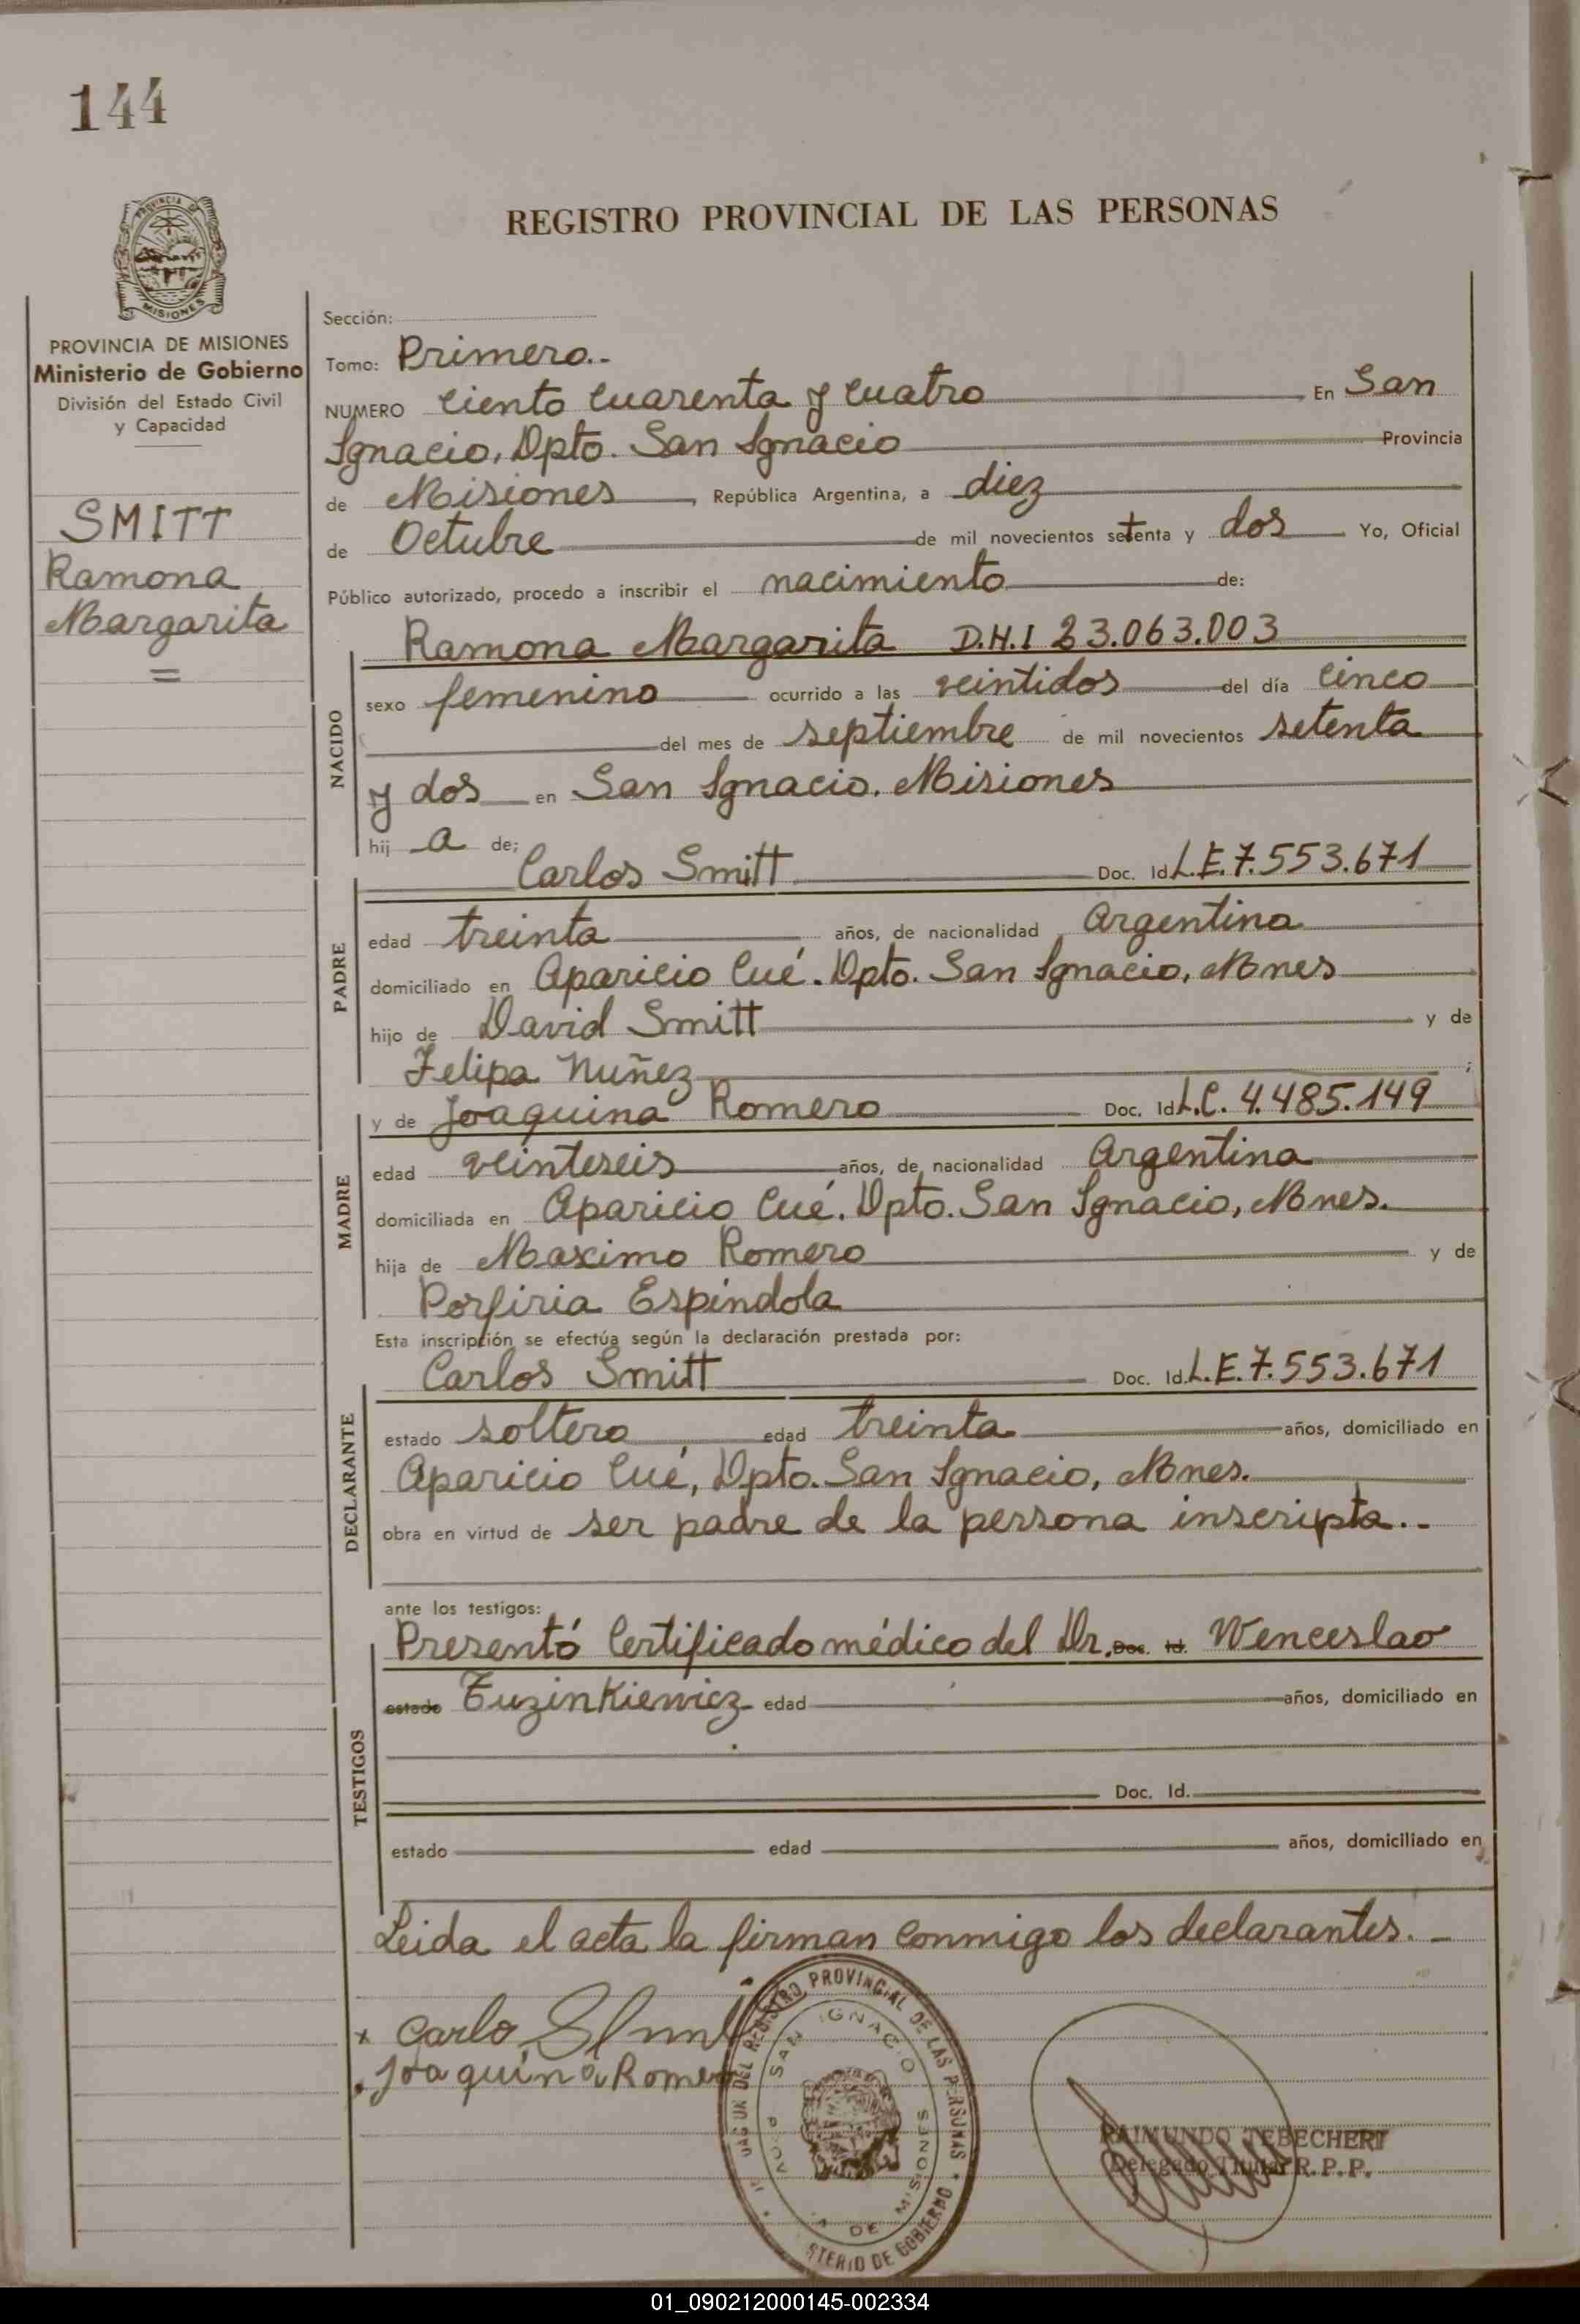 144
PROVINCIA DE
MISIONES
PROVINCIA DE MISIONES
Ministerio de Gobierno
División del Estado Civil
y Capacidad
SMITT
Ramona
Margarita
=
REGISTRO PROVINCIAL DE LAS PERSONAS
Sección:
Tomo: Primero.-
NUMERO Ciento Cuarenta y Cuatro En San
Ignacio, Dpto. San Ignacio Provincia
de Misiones, República Argentina, a diez
de Octubre de mil novecientos setenta y dos Yo, Oficial
Público autorizado, procedo a inscribir el nacimiento de:
NACIDO
Ramona Margarita D.N.I 23.063.003
sexo femenino ocurrido a las veintidos del día Cinco
del mes de septiembre de mil novecientos setenta
y dos en San Ignacio. Misiones
hij a de:
PADRE
Carlos Smitt Doc. Id L.E. 7.553.671
edad treinta años, de nacionalidad Argentina
domiciliado en Aparicio Cué. Dpto. San Ignacio, Mnes
hijo de David Smitt y de
Felipa Nuñez ;
MADRE
y de Joaquina Romero Doc. Id L.C. 4.485.149
edad veinteseis años, de nacionalidad Argentina
domiciliada en Aparicio Cué. Dpto. San Ignacio, Mnes.
hija de Maximo Romero y de
Porfiria Espíndola
Esta inscripción se efectúa según la declaración prestada por:
DECLARANTE
Carlos Smitt Doc. Id. L.E. 7.553.671
estado soltero, edad treinta años, domiciliado en
Aparicio Cué, Dpto. San Ignacio, Mnes.
obra en virtud de ser padre de la persona inscripta..-
ante los testigos:
TESTIGOS
Presentó Certificado médico del Dr. Doc. Id. Wenceslao
estado Tuzinkiewicz edad años, domiciliado en
Doc. Id.
estado edad años, domiciliado en
Leida el acta la firman Conmigo los declarantes.-
x Carlo
Joaquina Romero
REGISTRO PROVINCIAL DE LAS PERSONAS
SAN IGNACIO
DE MISIONES
DE GOBIERNO
RAIMUNDO TEBECHERI
Delegado Titular R.P.P.
01_090212000145-002334